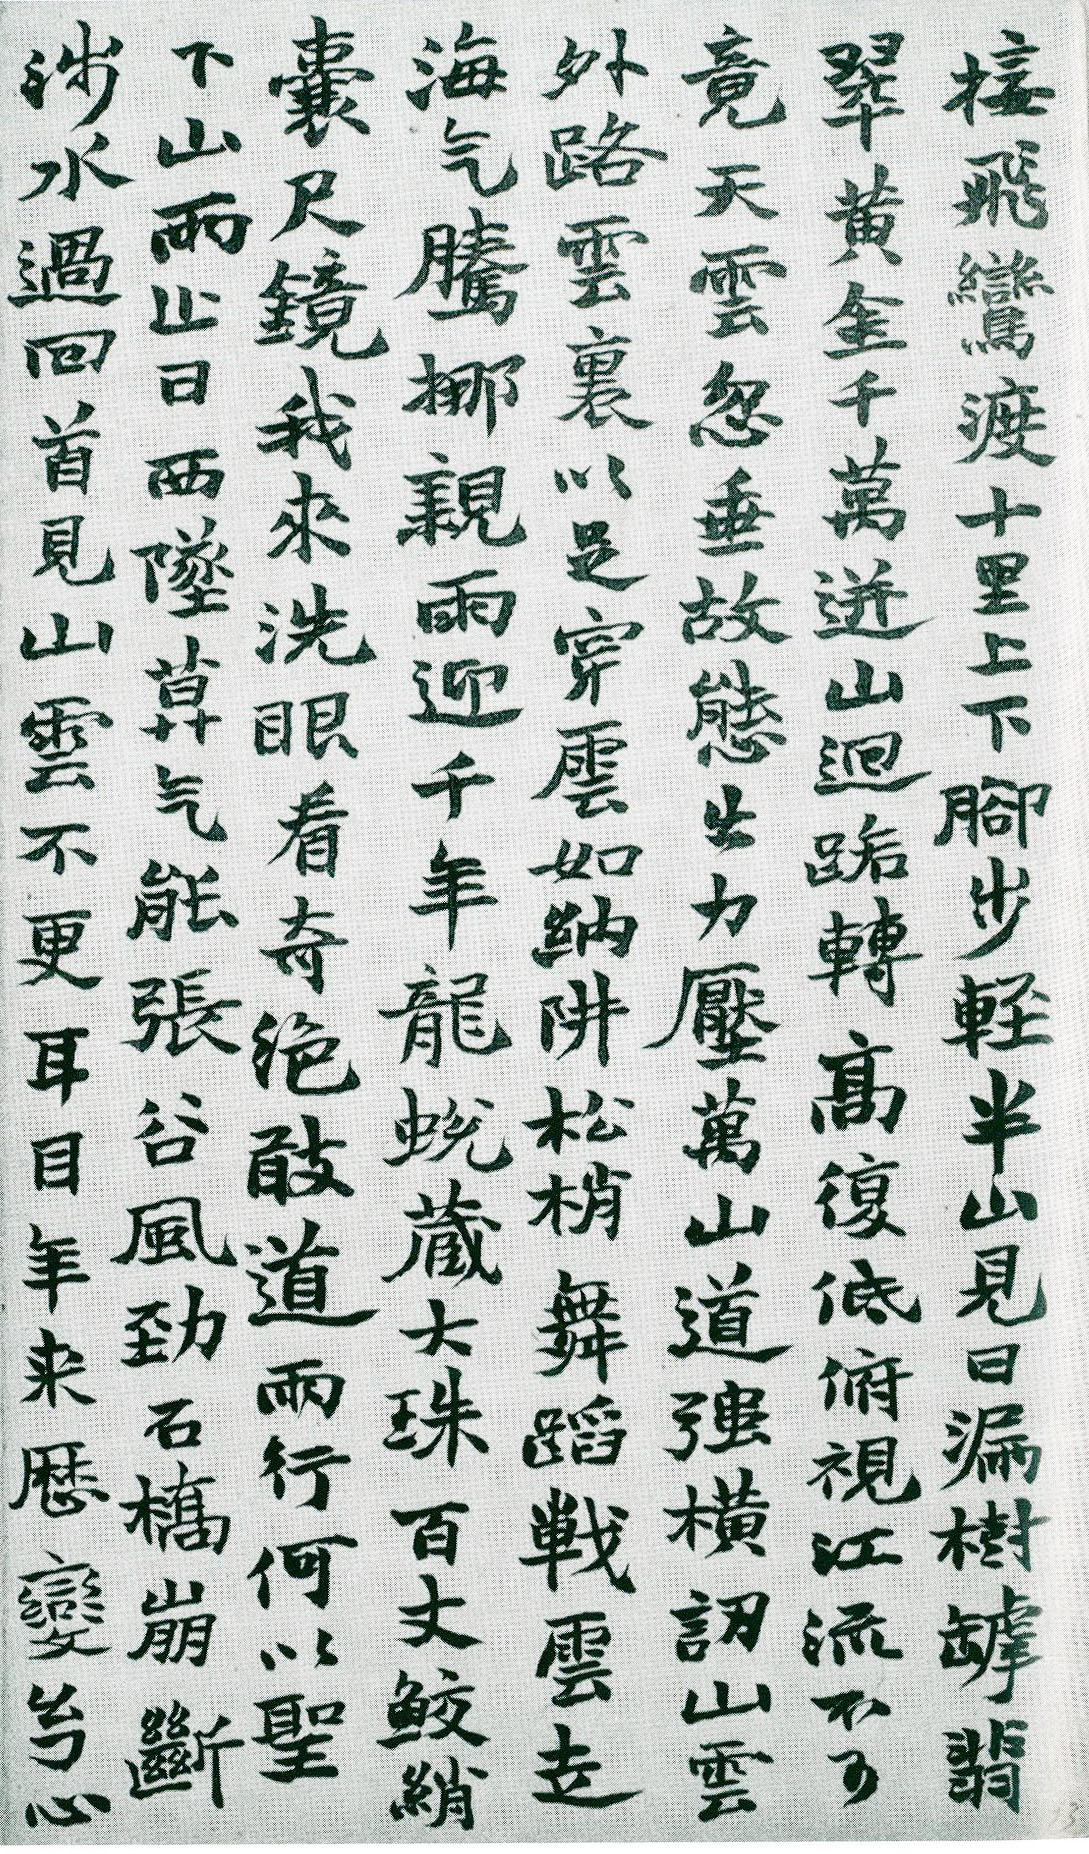 接飛鸞渡十里上下腳步輕半山見日漏樹罅翡
翠黃金千萬迸山迴路轉高復低俯視江流不可
竟天雲忽垂故態出力壓萬山道強橫認山雲
外路雲裏以足穿雲如納阱松梢舞蹈戰雲走
海气騰挪親雨迎千年龍蛻藏大珠百丈鮫綃
囊尺鏡我來洗眼看奇絶敢道兩行何以聖
下山雨止日西墜草气能張谷風勁石橋崩斷
涉水過回首見山雲不更耳目年来歷變兮心